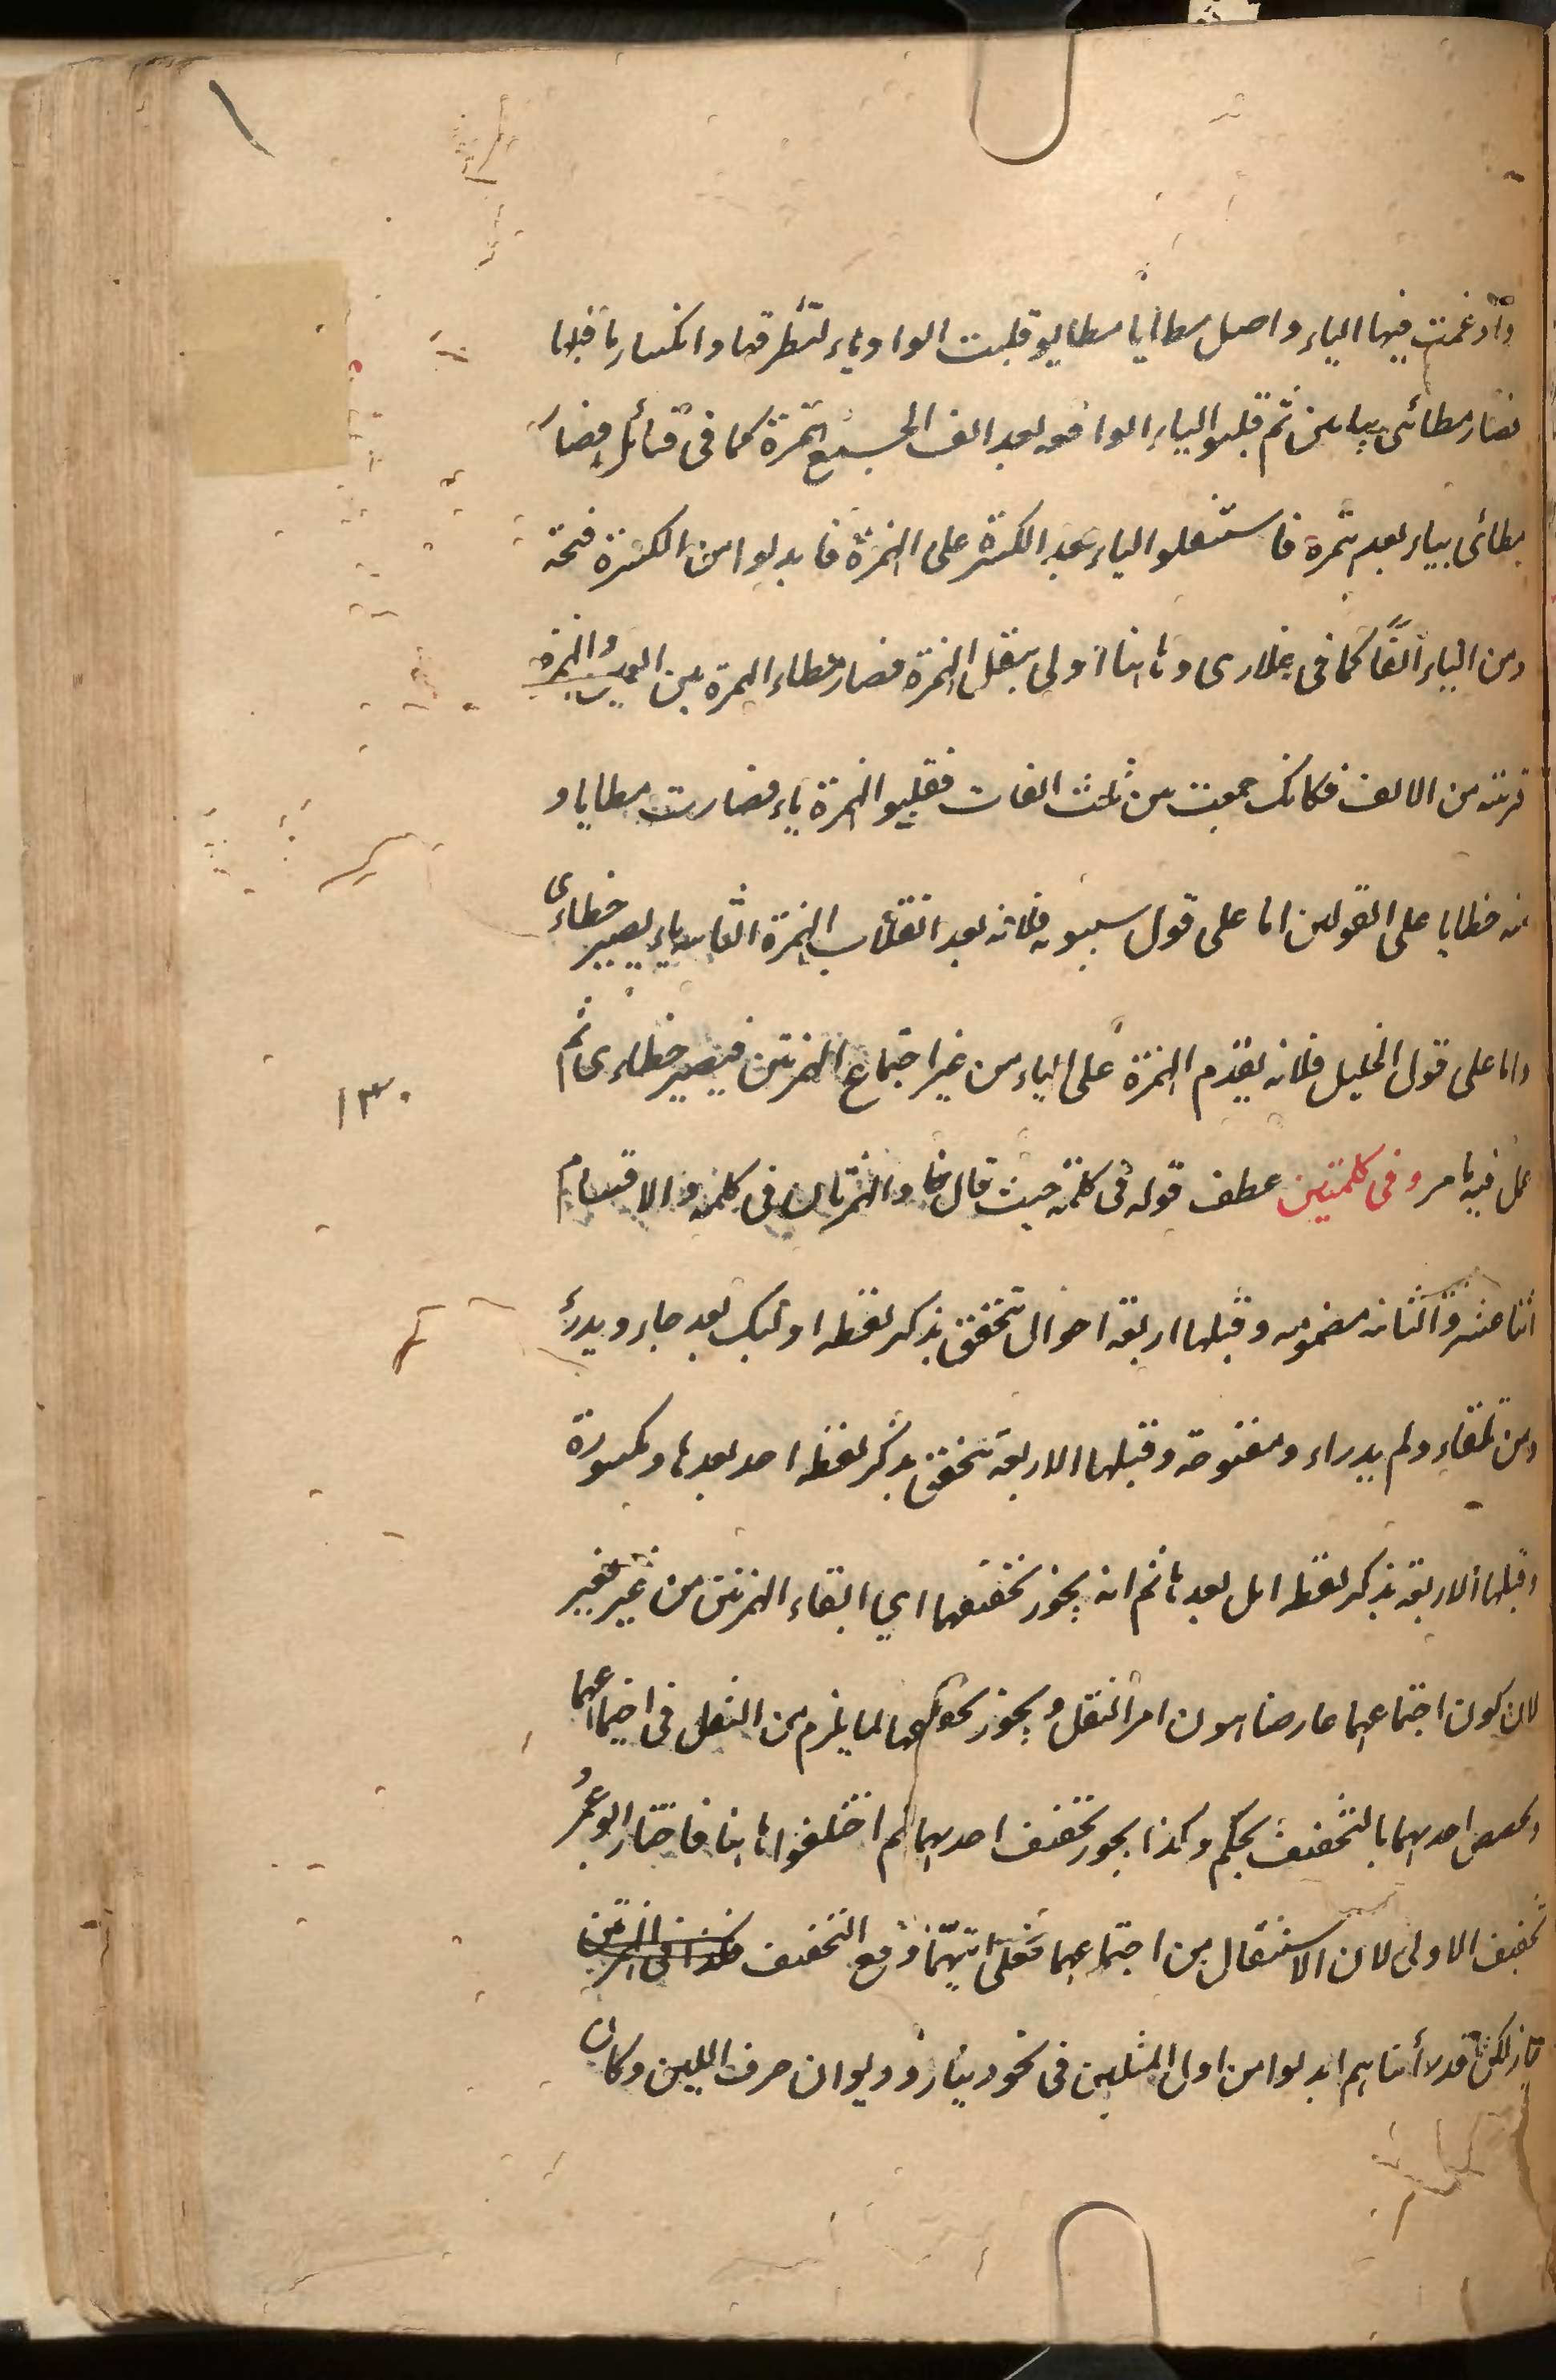 وأدغمت فيها الياء واصل مطايا مطايو قلبت الواو ياء لتطرفها وانكسار ما قبلها
فصار مطائى بيائين ثم قلبوا الياء الواقعه بعد الف الجمع همزة كما فى قبائل فصار
مطائى بياء بعد همزة فاستثقلوا الياء بعد الكسرة على الهمزة فابدلوا من الكسرة فتحة
ومن الياء ألفا كما فى عذارى وهاهنا أولى بثقل الهمزة فصار مطاء الهمزة بين الفين والهمزة
قريبة من الالف فكانك جمعت من ثلث الفات فقلبوا الهمزة ياء فصارت مطايا و
منه خطايا على القولين اما على قول سيبويه فلانه بعد انقلاب الهمزة الثانيه ياء يصير خطاءى
واما على قول الخليل فلانه يقدم الهمزة على الياء من غير اجتماع الهمزتين فيصير خطاءى ثم
عمل فيه ما مر وفى كلمتين عطف قوله فى كلمة حيث قال والهمزتان فى كلمة والاقسام
اثنا عشر والثانيه مضمومه وقبلها اربعة احوال تتحقق بذكر لفظه اولئك بعد جاء ويدرأ
ومن تلقاء ولم يدراء ومفتوحة وقبلها الاربعة تتحقق بذكر لفظه احد بعدها ومكسورة
وقبلها الاربعة بذكر لفظه ابل بعدها ثم انه يجوز تحقيقهما اي ابقاء الهمزتين من غير تغيير
لان كون اجتماعهما عارضا يهون امر الثقل ويجوز تخفيفهما لما يلزم من الثقل فى اجتماعهما
وتخصيص احديهما بالتخفيف تحكم وكذا يجوز تخفيف احديهما ثم اختلفوا هاهنا فاختار ابو عمرو
تخفيف الاولى لان الاستثقال من اجتماعهما فعلى ايتهما وقع التخفيف
جاز لكن قد رأيناهم ابدلوا من اول المثلين فى نحو دينار وديوان حرف اللين وكان
١٣٠